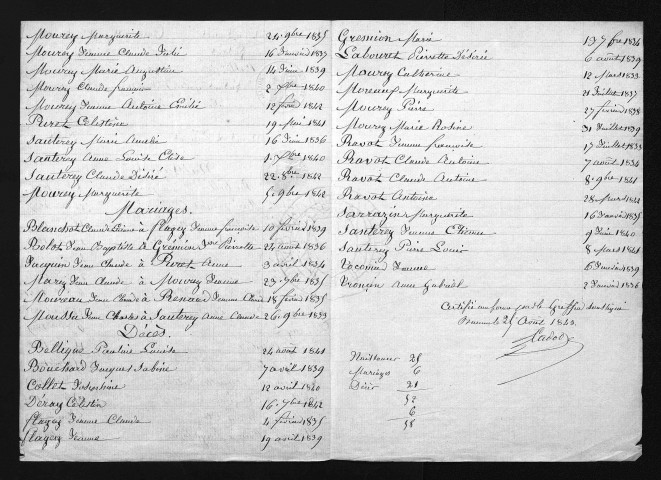 Mourey Marguerite 24. 9bre 1835
Mourey Jeanne Claude Julie 16 Janvier 1837
Mourey Marie Augustine 14 Juin 1839
Mourey Claude François 2. 7bre 1840
Mourey Jeanne Antoine Emélie 12 février 1842
Puret Célestine 19 Mai 1841
Sauterey Marie Amélie 16 Juin 1836
Sauterey Anne Louise Elise 1. 7bre 1840
Sauterey Claude Désiré 22. 8bre 1842
Mourey Marguerite 5. 9bre 1842
Mariages.
Blanchot Claude à Flagey Jeanne françoise 10 février 1839
Bolot Jean Baptiste à Grémion Pierrette 24 août 1836
Jacquin Jean Claude à Puret Anne 3 avril 1834
Marey Jean Claude à Mourey Jeanne 23. 9bre 1835
Moureau Jean Claude à Renaud Jeanne 18 février 1835
Moussu Jean Charles à Sauterey Anne Claude 26. 9bre 1833
Décès.
Belligue Pauline Louise 24 août 1841
Bouchard Jacques Sabine 7 avril 1839
Collet Joséphine 12 avril 1840
Déray Célestin 16. 7bre 1842
Flagey Jeanne Claude 4 février 1835
Flagey Jeanne 19 avril 1839
Gremion Marie 13 7bre 1834
Labouret Pierrette Désirée 6 août 1839
Mourey Catherine 12 Mars 1833
Moreaux Marguerite 21 Juillet 1837
Mourey Pierre 27 février 1838
Mourey Marie Rosine 31 Juillet 1839
Ravot Jeanne françoise 17 Juillet 1833
Ravot Claude Antoine 7 août 1834
Ravot Claude Antoine 8. 9bre 1841
Ravot Antoine 28 Mars 1842
Sarrazin Marguerite 16 Janvier 1835
Sauterey Jeanne Etienne 9 Juin 1840
Sauterey Pierre Louis 8 Mars 1841
Vacomme Jeanne 6 Janvier 1839
Vronçin Anne Gabriel 2 Janvier 1836
Certifié conforme par le Greffier soussigné
25 Août 1843.
Cadot
Naissances 25
Mariages 6
Décès 21
52
6
58